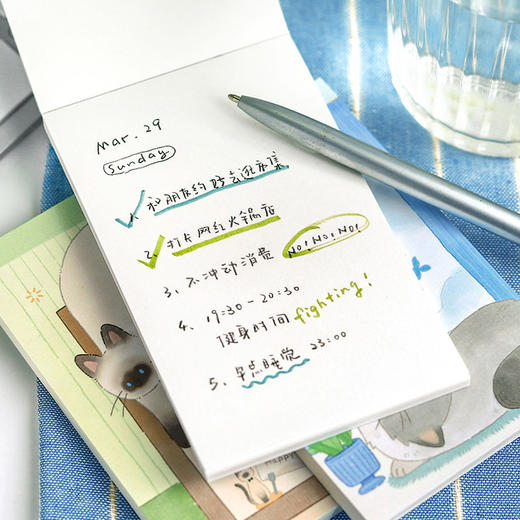 Mar. 29
Sunday
1、和朋友约好去逛市集
2、打卡网红火锅店
3、不冲动消费 NO! NO! NO!
4、19:30-20:30
健身时间 fighting!
5、早点睡觉 23:00
Happy